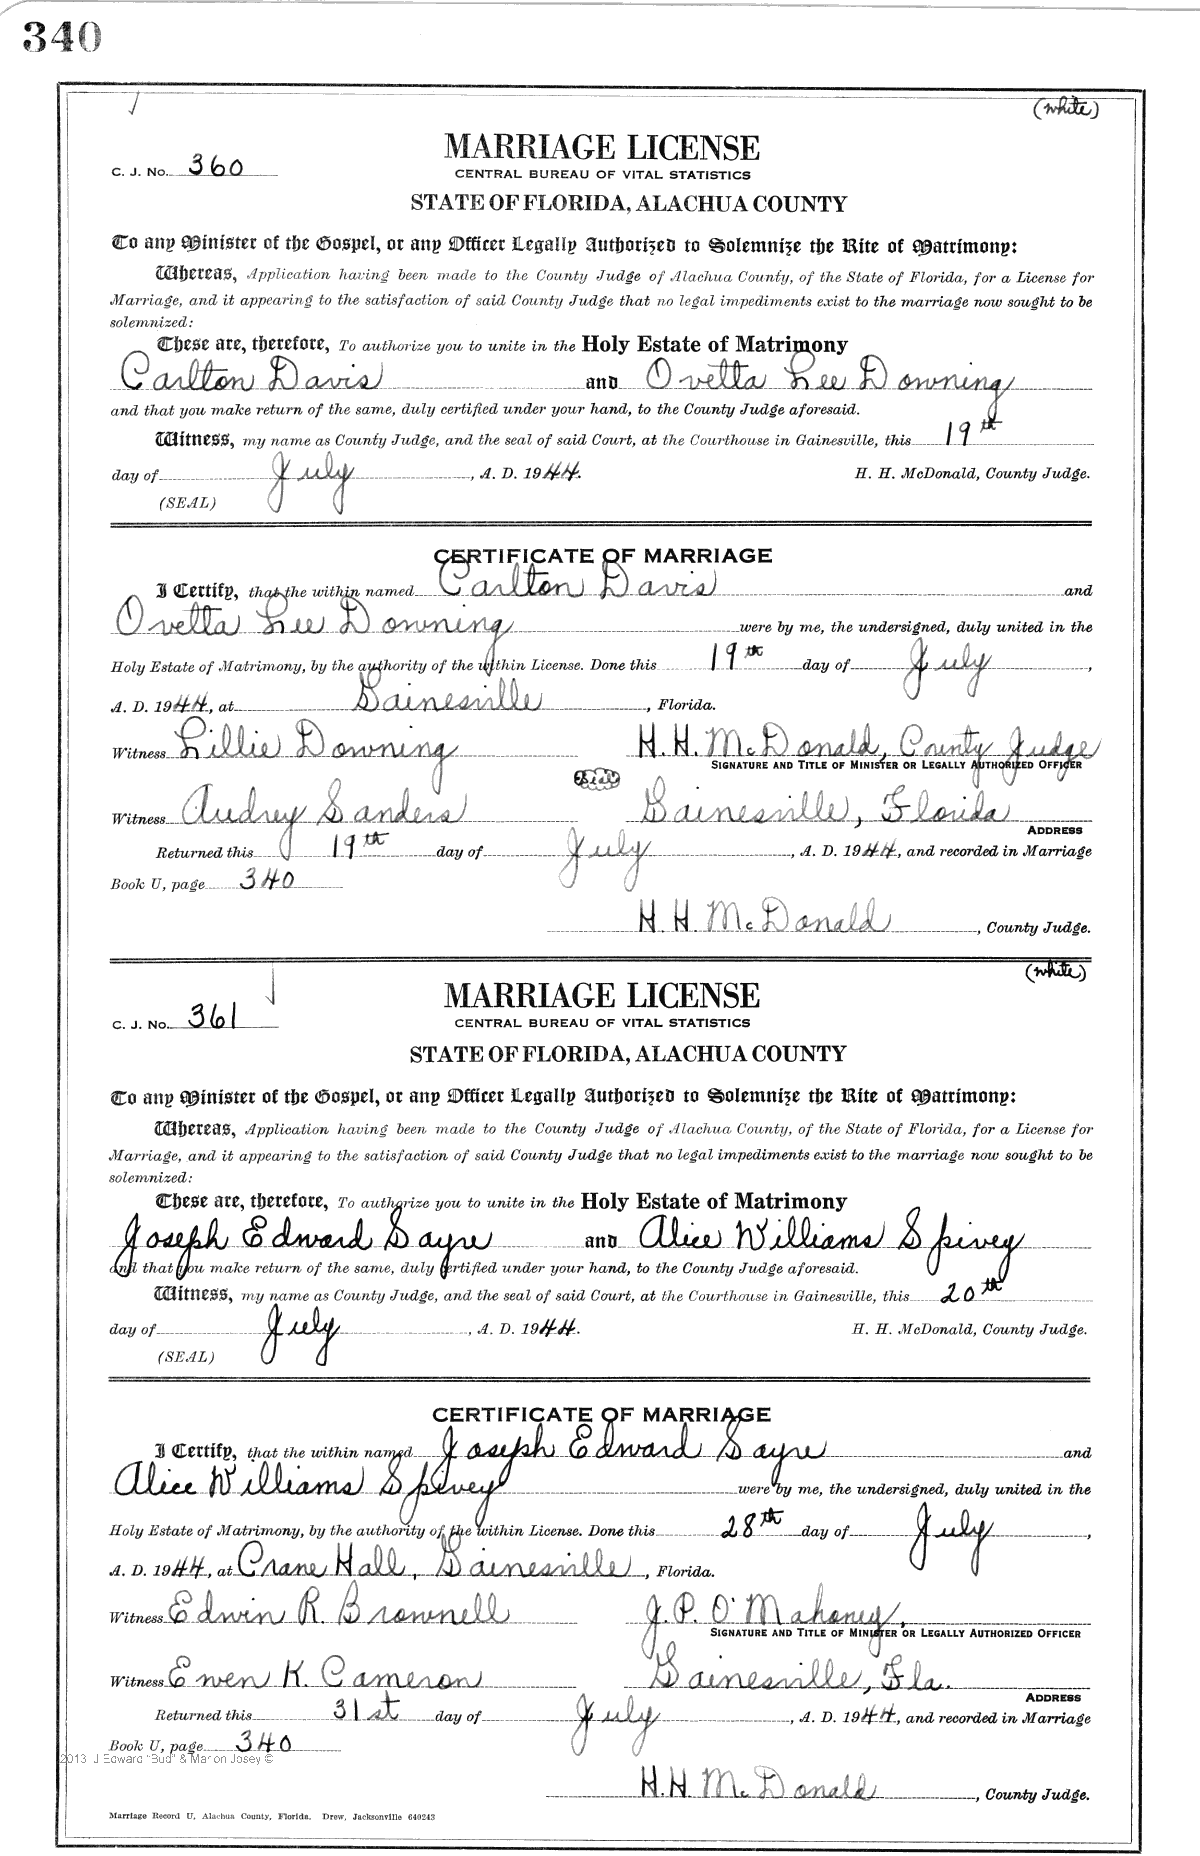 340
(white)
MARRIAGE LICENSE
C. J. No. 360
CENTRAL BUREAU OF VITAL STATISTICS
STATE OF FLORIDA, ALACHUA COUNTY
To any Minister of the Gospel, or any Officer Legally Authorized to Solemnize the Rite of Matrimony:
Whereas, Application having been made to the County Judge of Alachua County, of the State of Florida, for a License for
Marriage, and it appearing to the satisfaction of said County Judge that no legal impediments exist to the marriage now sought to be
solemnized:
These are, therefore, To authorize you to unite in the Holy Estate of Matrimony
Carlton Davis and Ovetta Lee Downing
and that you make return of the same, duly certified under your hand, to the County Judge aforesaid.
Witness, my name as County Judge, and the seal of said Court, at the Courthouse in Gainesville, this 19th
day of July, A. D. 1944. H. H. McDonald, County Judge.
(SEAL)
CERTIFICATE OF MARRIAGE
I Certify, that the within named Carlton Davis and
Ovetta Lee Downing were by me, the undersigned, duly united in the
Holy Estate of Matrimony, by the authority of the within License. Done this 19th day of July,
A. D. 1944, at Gainesville, Florida.
Witness Lillie Downing H. H. McDonald, County Judge
SIGNATURE AND TITLE OF MINISTER OR LEGALLY AUTHORIZED OFFICER
Seal
Witness Audrey Sanders Gainesville, Florida
ADDRESS
Returned this 19th day of July, A. D. 1944, and recorded in Marriage
Book U, page 340
H. H. McDonald, County Judge.
(white)
MARRIAGE LICENSE
C. J. No. 361
CENTRAL BUREAU OF VITAL STATISTICS
STATE OF FLORIDA, ALACHUA COUNTY
To any Minister of the Gospel, or any Officer Legally Authorized to Solemnize the Rite of Matrimony:
Whereas, Application having been made to the County Judge of Alachua County, of the State of Florida, for a License for
Marriage, and it appearing to the satisfaction of said County Judge that no legal impediments exist to the marriage now sought to be
solemnized:
These are, therefore, To authorize you to unite in the Holy Estate of Matrimony
Joseph Edward Sayre and Alice Williams Spivey
and that you make return of the same, duly certified under your hand, to the County Judge aforesaid.
Witness, my name as County Judge, and the seal of said Court, at the Courthouse in Gainesville, this 20th
day of July, A. D. 1944. H. H. McDonald, County Judge.
(SEAL)
CERTIFICATE OF MARRIAGE
I Certify, that the within named Joseph Edward Sayre and
Alice Williams Spivey were by me, the undersigned, duly united in the
Holy Estate of Matrimony, by the authority of the within License. Done this 28th day of July,
A. D. 1944, at Crane Hall, Gainesville, Florida.
Witness Edwin R. Brownell J. P. O'Mahoney,
SIGNATURE AND TITLE OF MINISTER OR LEGALLY AUTHORIZED OFFICER
Witness Ewen K. Cameron Gainesville, Fla.
ADDRESS
Returned this 31st day of July, A. D. 1944, and recorded in Marriage
Book U, page 340
2013 J Edward "Bud" & Marion Josey ©
H. H. McDonald, County Judge.
Marriage Record U, Alachua County, Florida. Drew, Jacksonville 640243